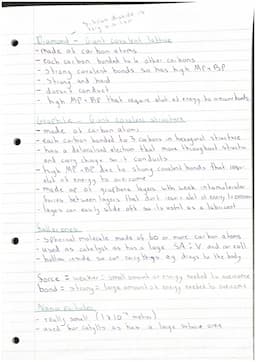 Diamond - Giant covalent lattice
- made of carbon atoms
- each carbon bonded to 4 other carbons
- strong covalent bonds so has high MP + BP
- strong and hard
- doesn't conduct
- high MP + BP that require alot of energy to
Graphite - Giant covalent structure
- made of carbon atoms
- each carbon bonded to 3 carbons in hexagonal structure
- has a delocalised electron that move throughout structure
and carry charge so it conducts
- high MP + BP due to strong covalent bonds that
alot of energy to overcome
- made up of graphene layers with weak intermolecular
forces between layers that don't alot of energy to
layers can easily slide off so its useful as a lubricant
- spherical molecule made of 60 or more carbon atoms
- used as catalyst as has a large SA:V
- hollow inside so can carry things eg drugs to the body
force = weaker = small amount of energy needed to overcome
bond = strong = large amount of energy needed to overcome
- really small
- used for as has a large surface area